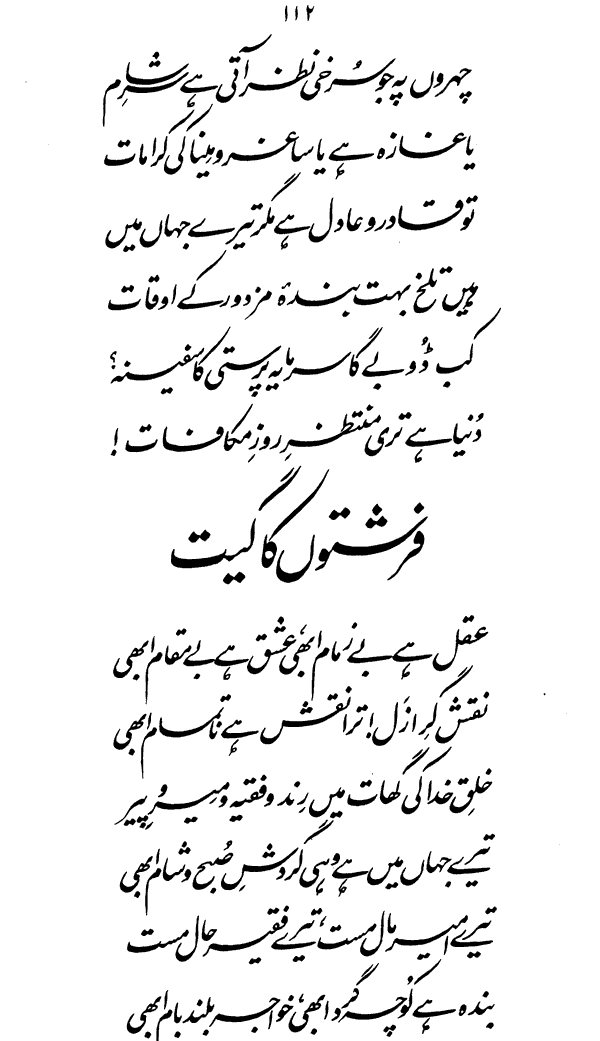 ۱۱۲
چہروں پہ جو سُرخی نظر آتی ہے سرِشام
یا غازہ ہے یا ساغر و مینا کی کرامات
تو قادر و عادل ہے مگر تیرے جہاں میں
ہیں تلخ بہت بندۂ مزدور کے اوقات
کب ڈُوبے گا سرمایہ پرستی کا سفینہ؟
دُنیا ہے تری منتظرِ روزِ مکافات!
فرشتوں کا گیت
عقل ہے بے زمام ابھی، عشق ہے بے مقام ابھی
نقش گرِ ازَل! ترا نقش ہے ناتمام ابھی
خلقِ خدا کی گھات میں رِند و فقیہ و میر و پیر
تیرے جہاں میں ہے وہی گردشِ صُبح و شام ابھی
تیرے امیر مال مست، تیرے فقیر حال مست
بندہ ہے کُوچہ گرد ابھی، خواجہ بلند بام ابھی